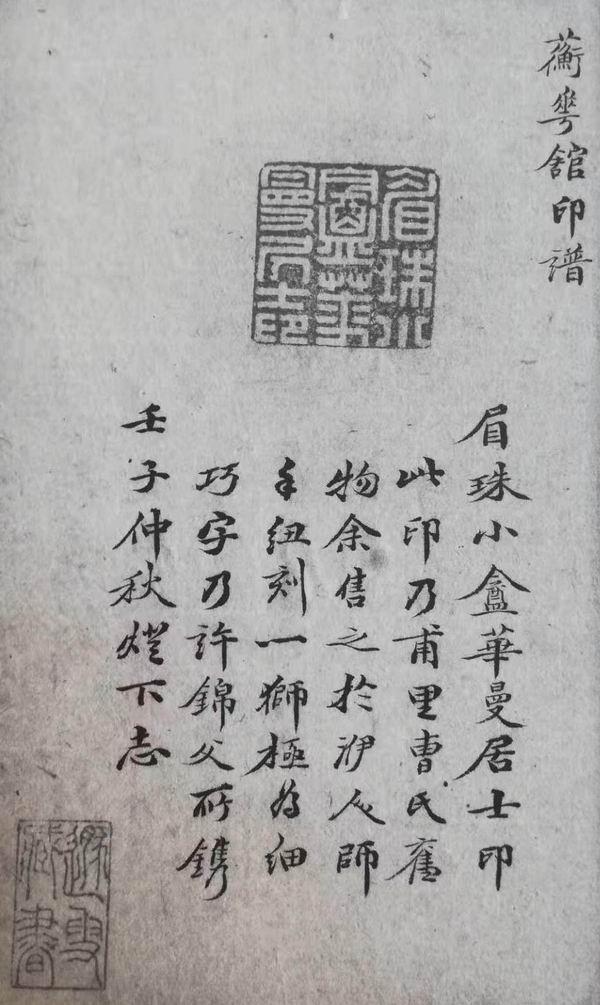 蘅華舘印譜
眉珠小
盦華
曼居士印
眉珠小盦華曼居士印
此印乃甫里曹氏舊
物余售之於人師
手紐刻一獅極为細
巧字乃許錦父所鐫
壬子仲秋燈下志
遯叟
藏書